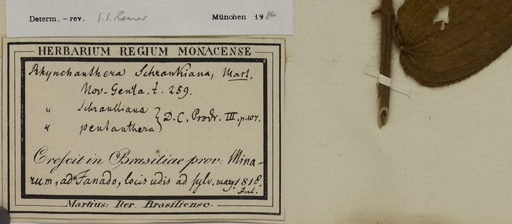 Determ. - rev. S.S. Renner München 1986
HERBARIUM REGIUM MONACENSE
Rhynchanthera Schrankiana, Mart.
Nov. Gen. t. 259.
" Schrankiana } D.C. Prodr. III. p. 107.
" pentanthera
Crescit in Brasiliae prov. Mina-
rum, ad Fanado, locis udis ad sylv. may. 1818.
Jul.
Martius: Iter Brasiliense.